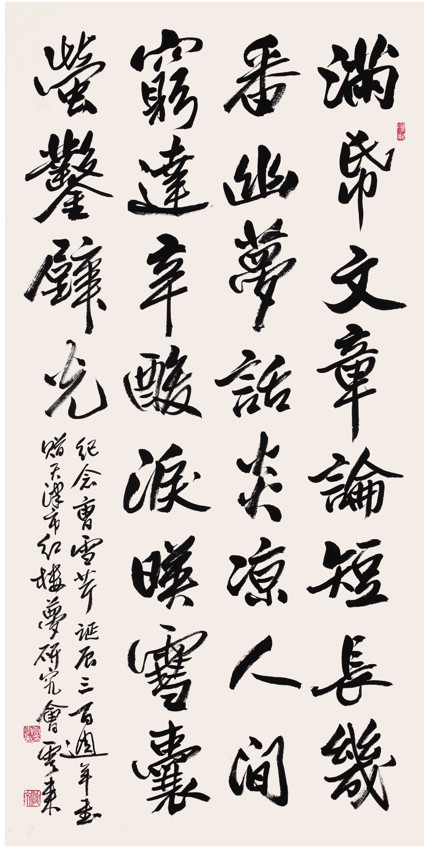 滿帋文章論短長幾
番幽夢話炎凉人間
窮達辛酸淚暎雪囊
螢鑿壁光
紀念曹雪芹誕辰三百週年書
贈天津市紅樓夢研究會雲来